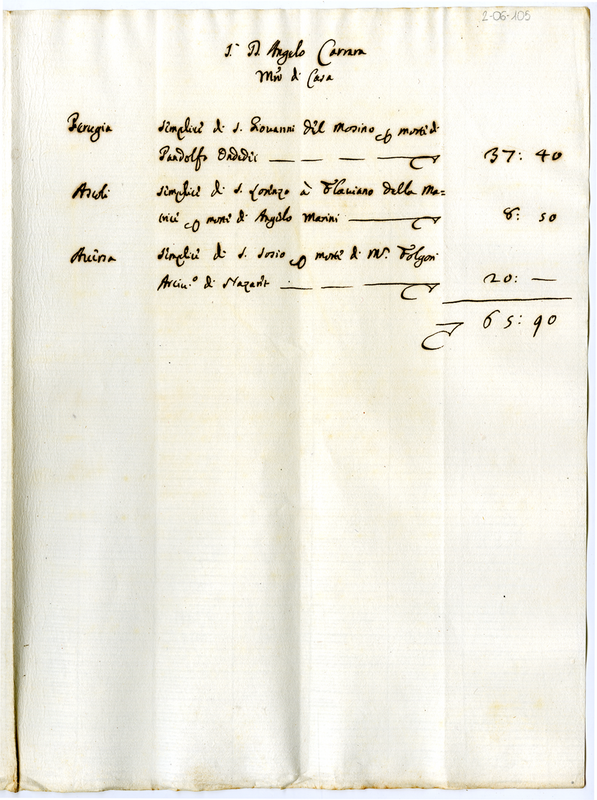 2-06-105
S.r D. Angelo Carrara
Mro di Casa
Perugia simplici di s. Giovanni del morti di
Pandolfo 37: 40
Ascoli simplici di s. Lorenzo à Flaviano della Ma=
trice morte di Angelo Marini 8: 50
Aversa simplici di s. Sosio morte di Folgori
Arciu.o di Nazaret 20: —
65: 90